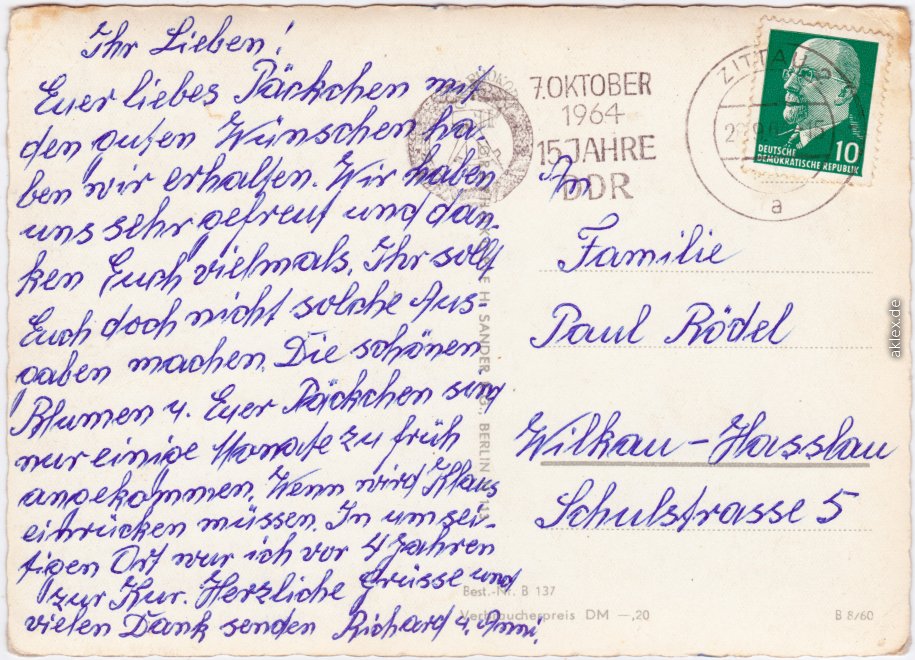 Ihr Lieben!
Euer liebes Päckchen mit
den guten Wünschen ha-
ben wir erhalten. Wir haben
uns sehr gefreut und dan-
ken Euch vielmals. Ihr sollt
Euch doch nicht solche Aus-
gaben machen. Die schönen
Blumen u. Euer Päckchen sind
nur einige Monate zu früh
angekommen. Wenn wird Klaus
einrücken müssen. In umsei-
tigen Ort war ich vor 4 Jahren
zur Kur. Herzliche Grüsse und
vielen Dank senden Richard u. Anni.
7. OKTOBER
1964
15 JAHRE
DDR
ZITTAU
a
DEUTSCHE
DEMOKRATISCHE REPUBLIK
10
An
Familie
Paul Rödel
Wilkau-Hasslau
Schulstrasse 5
H. SANDER KG., BERLIN
Best.-Nr. B 137
Verbraucherpreis DM —,20
B 8/60
aklex.de